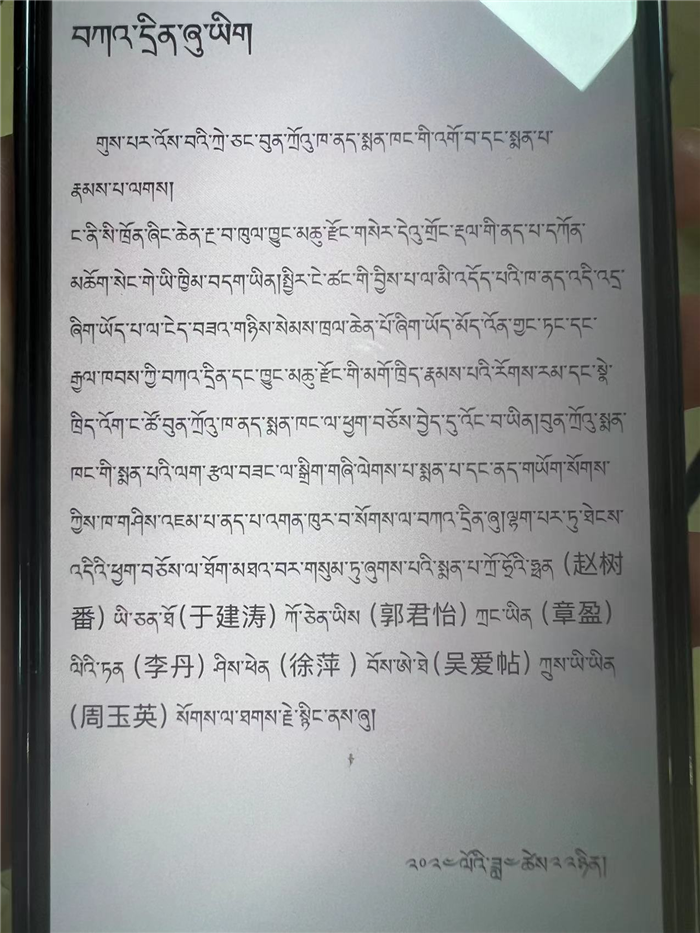 བཀའ་དྲིན་ཞུ་ཡིག
གུས་པར་འོས་བའི་ཀྲེ་ཅང་བུན་ཀྲོའུ་ཁ་ནད་སྨན་ཁང་གི་འགོ་བ་དང་སྨན་པ་
རྣམས་པ་ལགས།
ང་ནི་སི་ཁྲོན་ཞིང་ཆེན་རྔ་བ་ཁུལ་ཁྱུང་མཆུ་རྫོང་གསེར་དེའུ་གྲོང་རྡལ་གི་ནད་པ་དཀོན་
མཆོག་སེང་གེ་ཡི་ཁྱིམ་བདག་ཡིན།སྤྱིར་ངེ་ཚང་གི་བྱིས་པ་ལ་མི་འདོད་པའི་ཁ་ནད་འདི་འདྲ་
ཞིག་ཡོད་པ་ལ་ངེད་བཟའ་གཉིས་སེམས་ཁྲལ་ཆེན་པོ་ཞིག་ཡོད་མོད་འོན་གྱང་ཏང་དང་
རྒྱལ་ཁབས་ཀྱི་བཀའ་དྲིན་དང་ཁྱུང་མཆུ་རྫོང་གི་མགོ་ཁྲིད་རྣམས་པའི་རོགས་རམ་དང་སྣེ་
ཁྲིད་འོག་ང་ཚོ་བུན་ཀྲོའུ་ཁ་ནད་སྨན་ཁང་ལ་ཕྱག་བཅོས་བྱེད་དུ་འོང་བ་ཡིན།བུན་ཀྲོའུ་སྨན་
ཁང་གི་སྨན་པའི་ལག་རྩལ་བཟང་ལ་སྒྲིག་གཞི་ལེགས་པ་སྨན་པ་དང་ནད་གཡོག་སོགས་
ཀྱིས་ཁ་གཤིས་འཇམ་པ་ནད་པ་འགན་ཁུར་བ་སོགས་ལ་བཀའ་དྲིན་ཞུ།ལྷག་པར་ཏུ་ཐེངས་
འདིའི་ཕྱག་བཅོས་ལ་ཐོག་མཐའ་བར་གསུམ་ཏུ་ཞུགས་པའི་སྨན་པ་ཀྲོ་ཧྲོའི་ཧྥན (赵树
番) ཡི་ཅན་ཐོ(于建涛) ཀོ་ཅེན་ཡིས (郭君怡) ཀྲང་ཡིན (章盈)
ལིའི་ཏན (李丹) ཤིས་ཕེན (徐萍 ) བོས་ཨེ་ཐེ(吴爱帖) ཀྲུས་ཡི་ཡིན
(周玉英) སོགས་ལ་ཐགས་རྗེ་སྙིང་ནས་ཞུ།